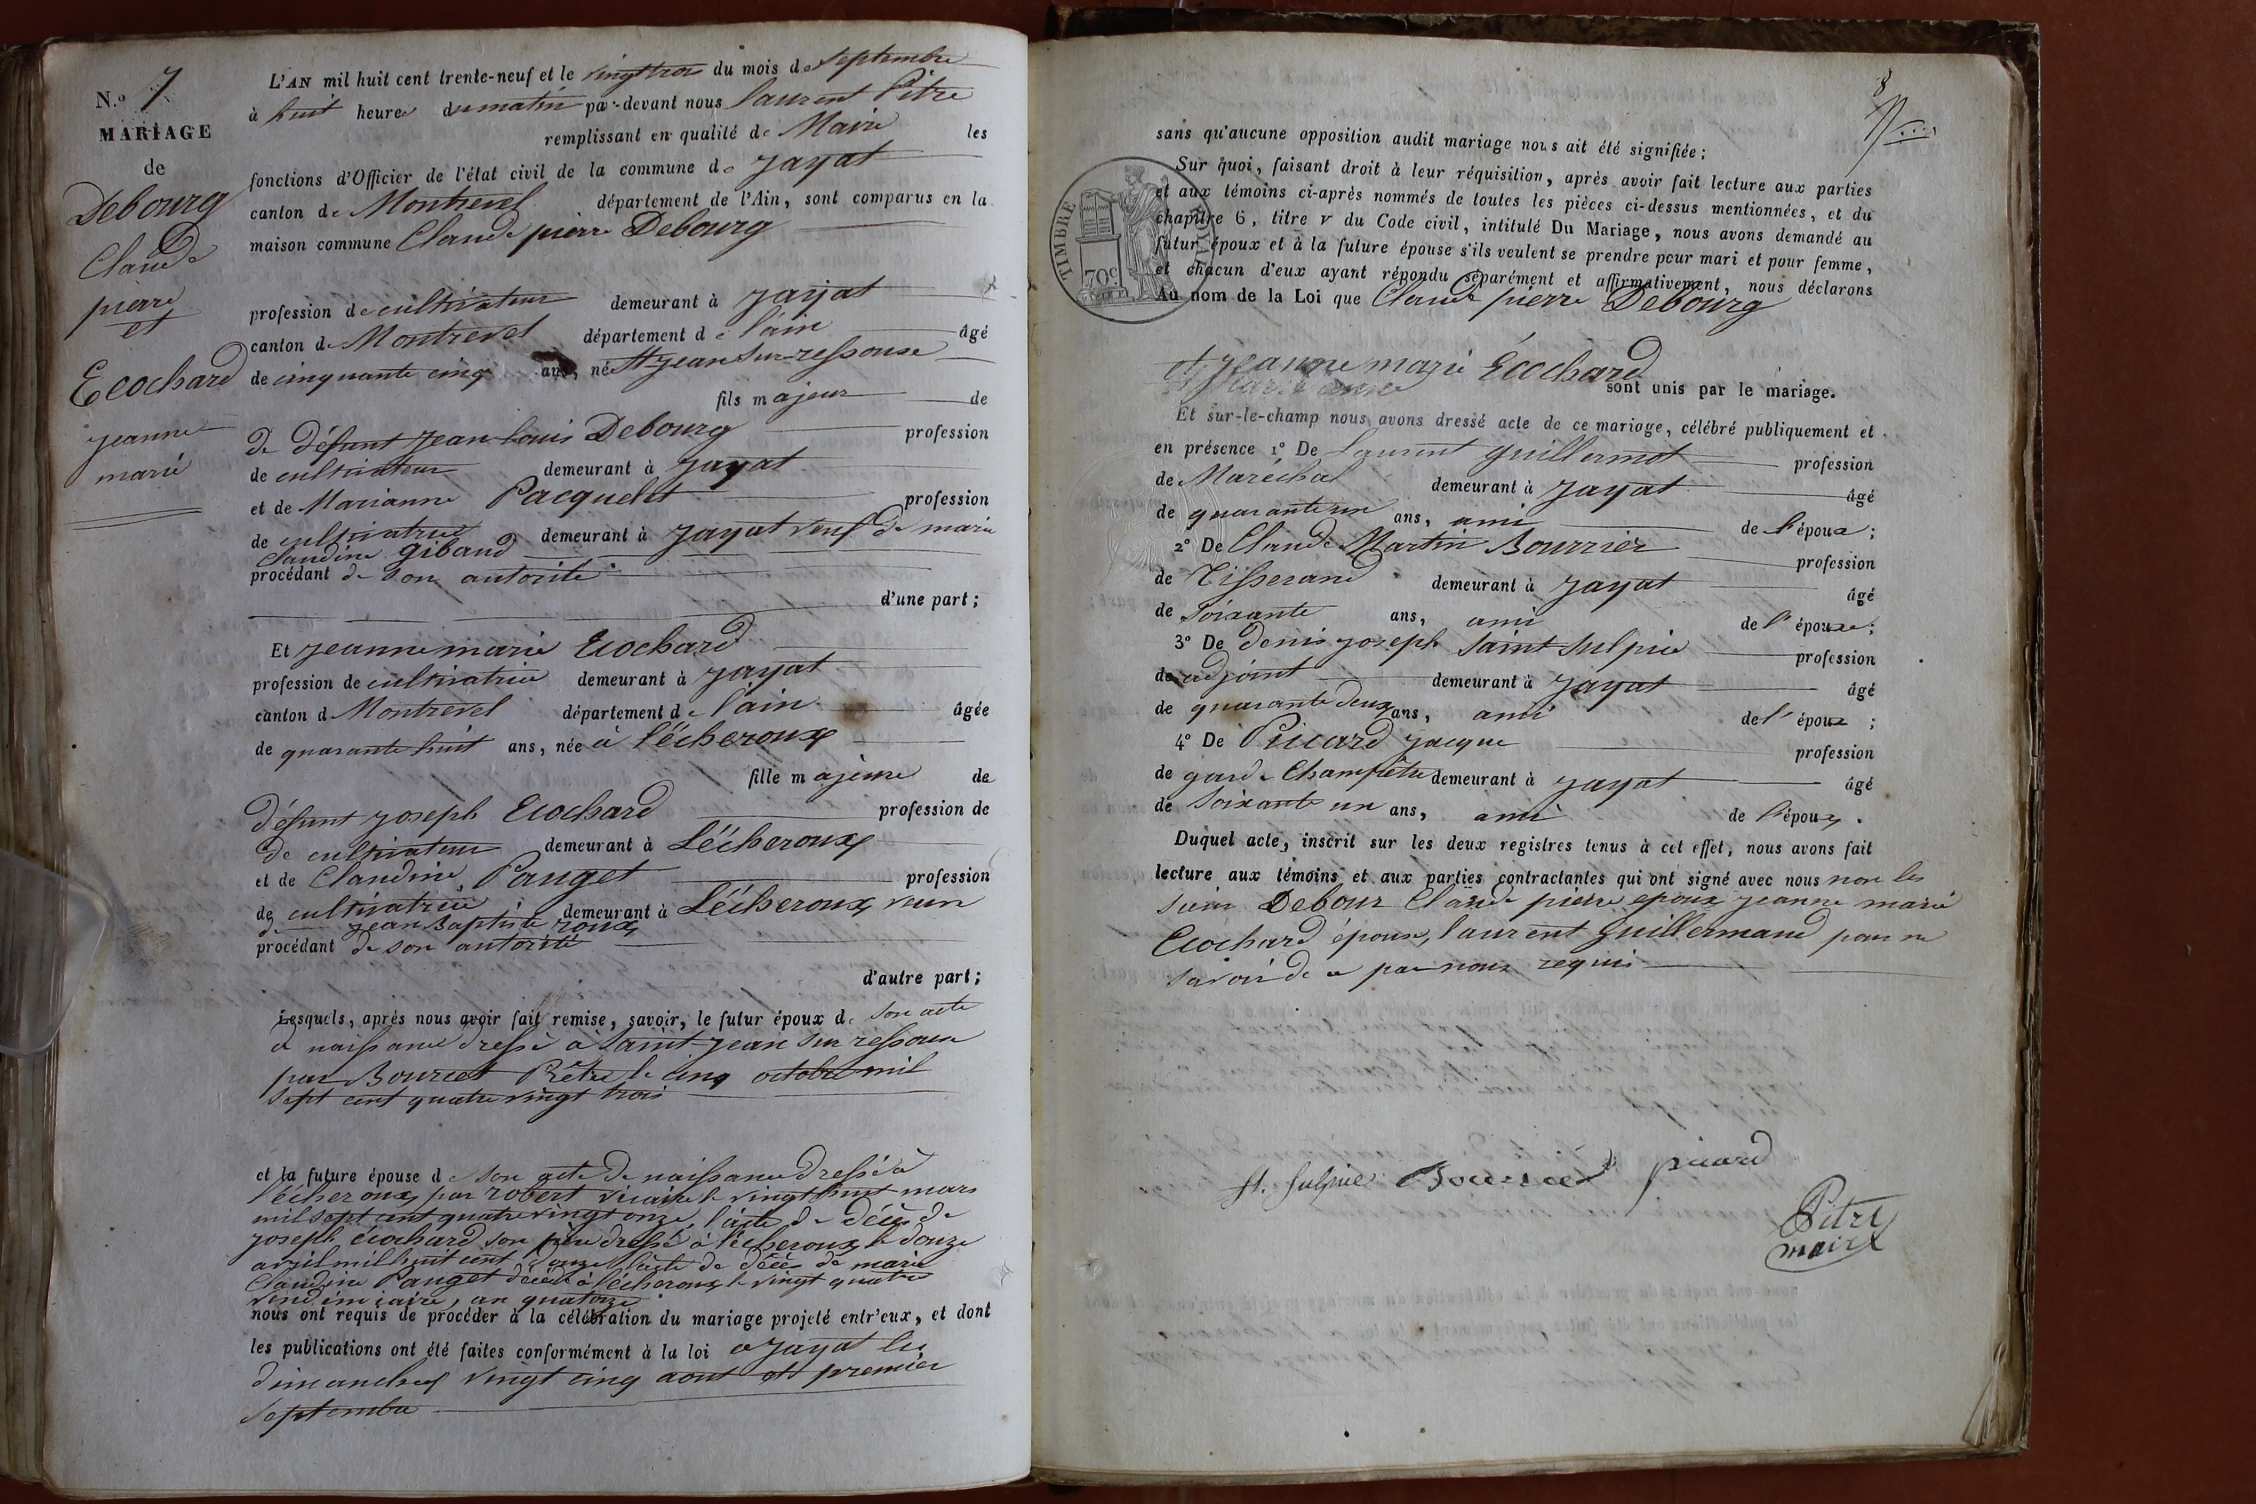 N.º 7
MARIAGE
de
Debourg
Claude
pierre
et
Ecochard
jeanne
marie
L'AN mil huit cent trente-neuf et le vingt trois du mois de septembre
à huit heures du matin par-devant nous laurent Pitre
remplissant en qualité de Maire les
fonctions d'Officier de l'état civil de la commune de jayat
canton de Montrevel département de l'Ain, sont comparus en la
maison commune Claude pierre Debourg
profession de cultivateur demeurant à jayat
canton de Montrevel département de l'ain âgé
de cinquante cinq ans, né St jean sur ressouse
fils majeur de
de défunt jean louis Debourg profession
de cultivateur demeurant à jayat
et de Marianne Pacquelet profession
de cultivatrice demeurant à jayat veuf de marie
claudine gibaud
procédant de son autorité
d'une part;
Et jeanne marie Ecochard
profession de cultivatrice demeurant à jayat
canton d Montrevel département de l'ain âgée
de quarante huit ans, née à l'écheroux
fille majeure de
défunt joseph Ecochard profession de
de cultivateur demeurant à L'écheroux
et de Claudine Pauget profession
de cultivatrice demeurant à L'écheroux veuve
de jean Baptiste roux
procédant de son autorité
d'autre part;
Lesquels, après nous avoir fait remise, savoir, le futur époux de son acte
de naissance dressé à saint jean sur ressouse
par Bourcet Prêtre le cinq octobre mil
sept cent quatre vingt trois
et la future épouse de son acte de naissance dressé à
l'écheroux par robert vicaire le vingt huit mars
mil sept cent quatre vingt onze, l'acte de décès de
joseph écochard son père dressé à l'écheroux le douze
avril mil huit cent onze l'acte de décès de marie
Claudine Pauget décédé à l'écheroux le vingt quatre
vendémiaire, an quatorze
nous ont requis de procéder à la célébration du mariage projeté entr'eux, et dont
les publications ont été faites conformément à la loi a jayat les
dimanches vingt cinq aout et premier
septembre
8
sans qu'aucune opposition audit mariage nous ait été signifiée;
Sur quoi, faisant droit à leur réquisition, après avoir fait lecture aux parties
et aux témoins ci-après nommés de toutes les pièces ci-dessus mentionnées, et du
chapitre 6, titre v du Code civil, intitulé Du Mariage, nous avons demandé au
futur époux et à la future épouse s'ils veulent se prendre pour mari et pour femme,
et chacun d'eux ayant répondu séparément et affirmativement, nous déclarons
Au nom de la Loi que Claude pierre Debourg
TIMBRE ROYAL
70 c
et jeanne marie Écochard
sont unis par le mariage.
Et sur-le-champ nous avons dressé acte de ce mariage, célébré publiquement et
en présence 1º De Laurent guillermot profession
de Maréchal demeurant à jayat âgé
de quarante un ans, ami de l'époux;
2º De Claude Martin Bourrier profession
de Tisserand demeurant à jayat âgé
de soixante ans, ami de l'époux;
3º De denis joseph saint sulpice profession
de adjoint demeurant à jayat âgé
de quarante deux ans, ami de l'époux;
4º De Picard jacque profession
de garde Champêtre demeurant à jayat âgé
de soixante un ans, ami de l'époux.
Duquel acte, inscrit sur les deux registres tenus à cet effet, nous avons fait
lecture aux témoins et aux parties contractantes qui ont signé avec nous non les
sieurs Debour Claude pierre epoux jeanne marie
Ecochard épouse, laurent guillermaud pour ne
savoir de ce par nous requis
st. sulpice Bourcier picard
Pitre
maire